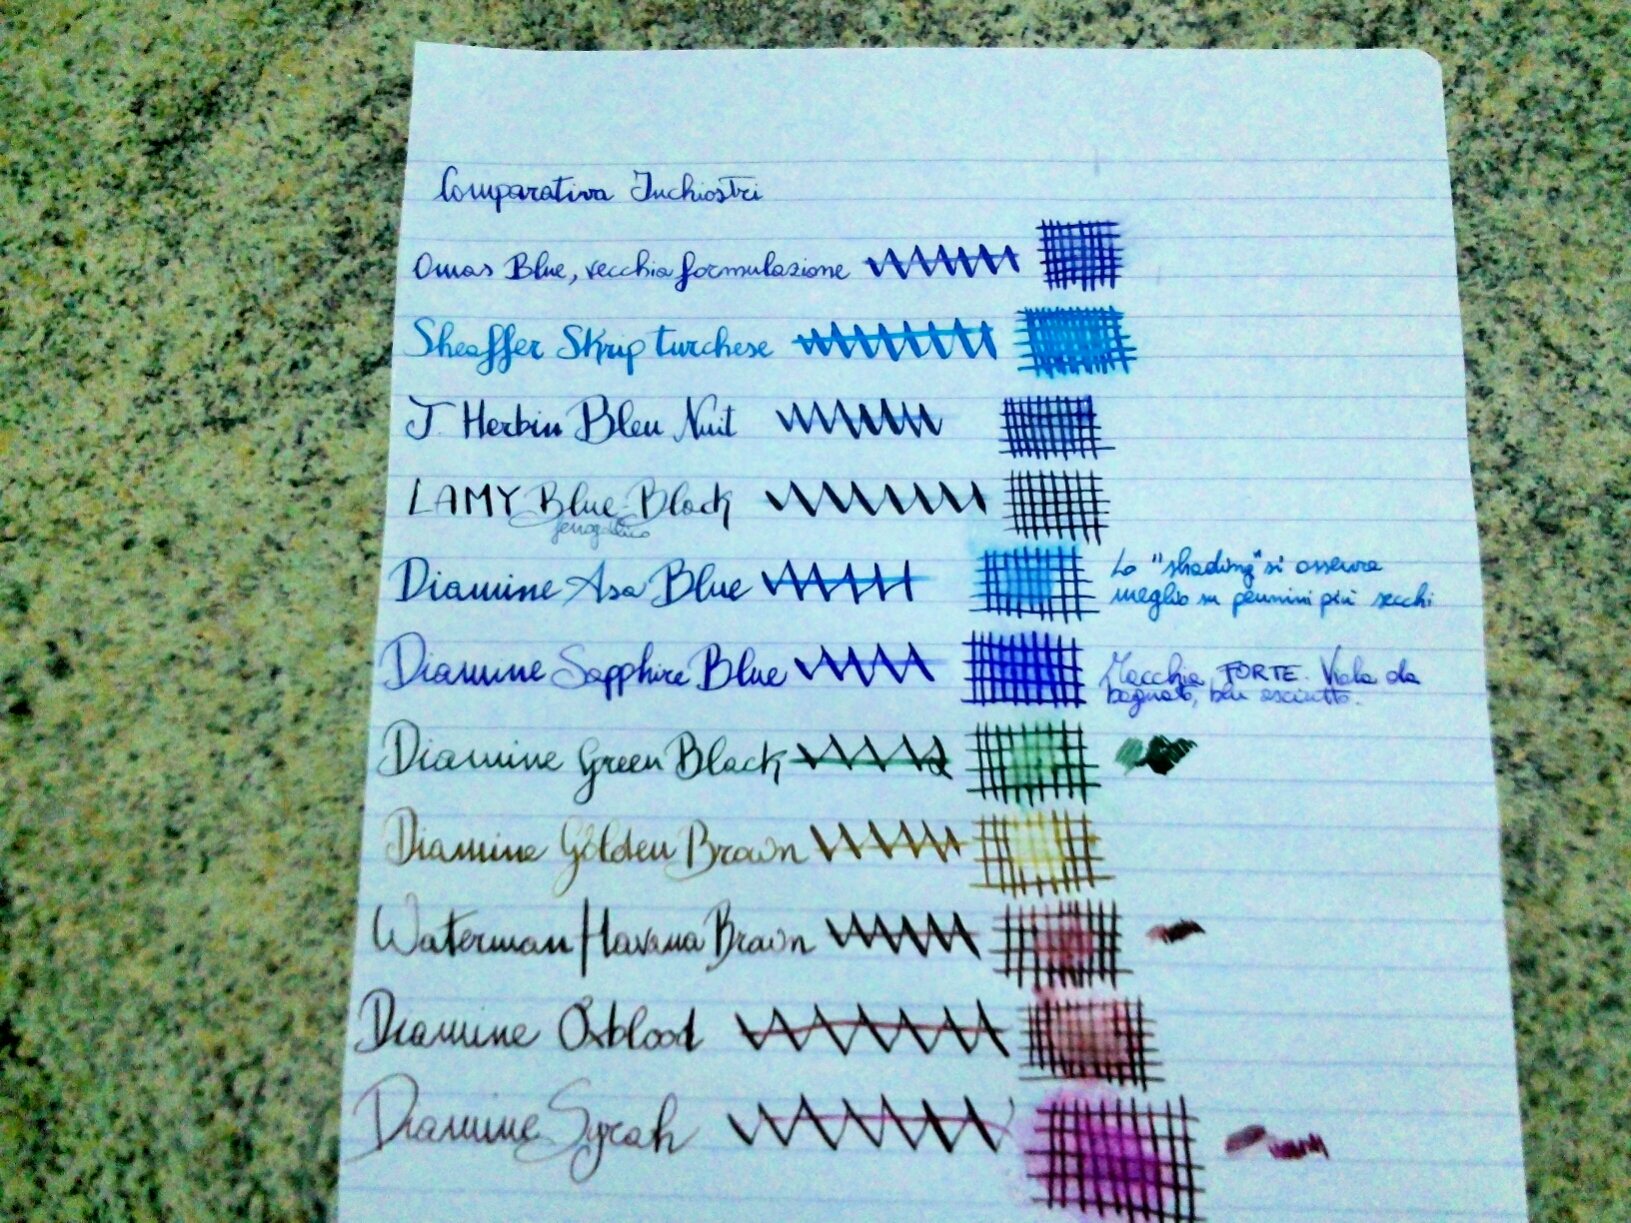 Comparativa Inchiostri
Omas Blue, vecchia formulazione
Sheaffer Skrip turchese
J. Herbin Bleu Nuit
LAMY Blue-Black
ferrogallico
Diamine Asa Blue
Lo "shading" si osserva
meglio su pennini più secchi
Diamine Sapphire Blue
Macchia FORTE. Viola da
bagnato, blu asciutto.
Diamine Green Black
Diamine Golden Brown
Waterman Havana Brown
Diamine Oxblood
Diamine Syrah